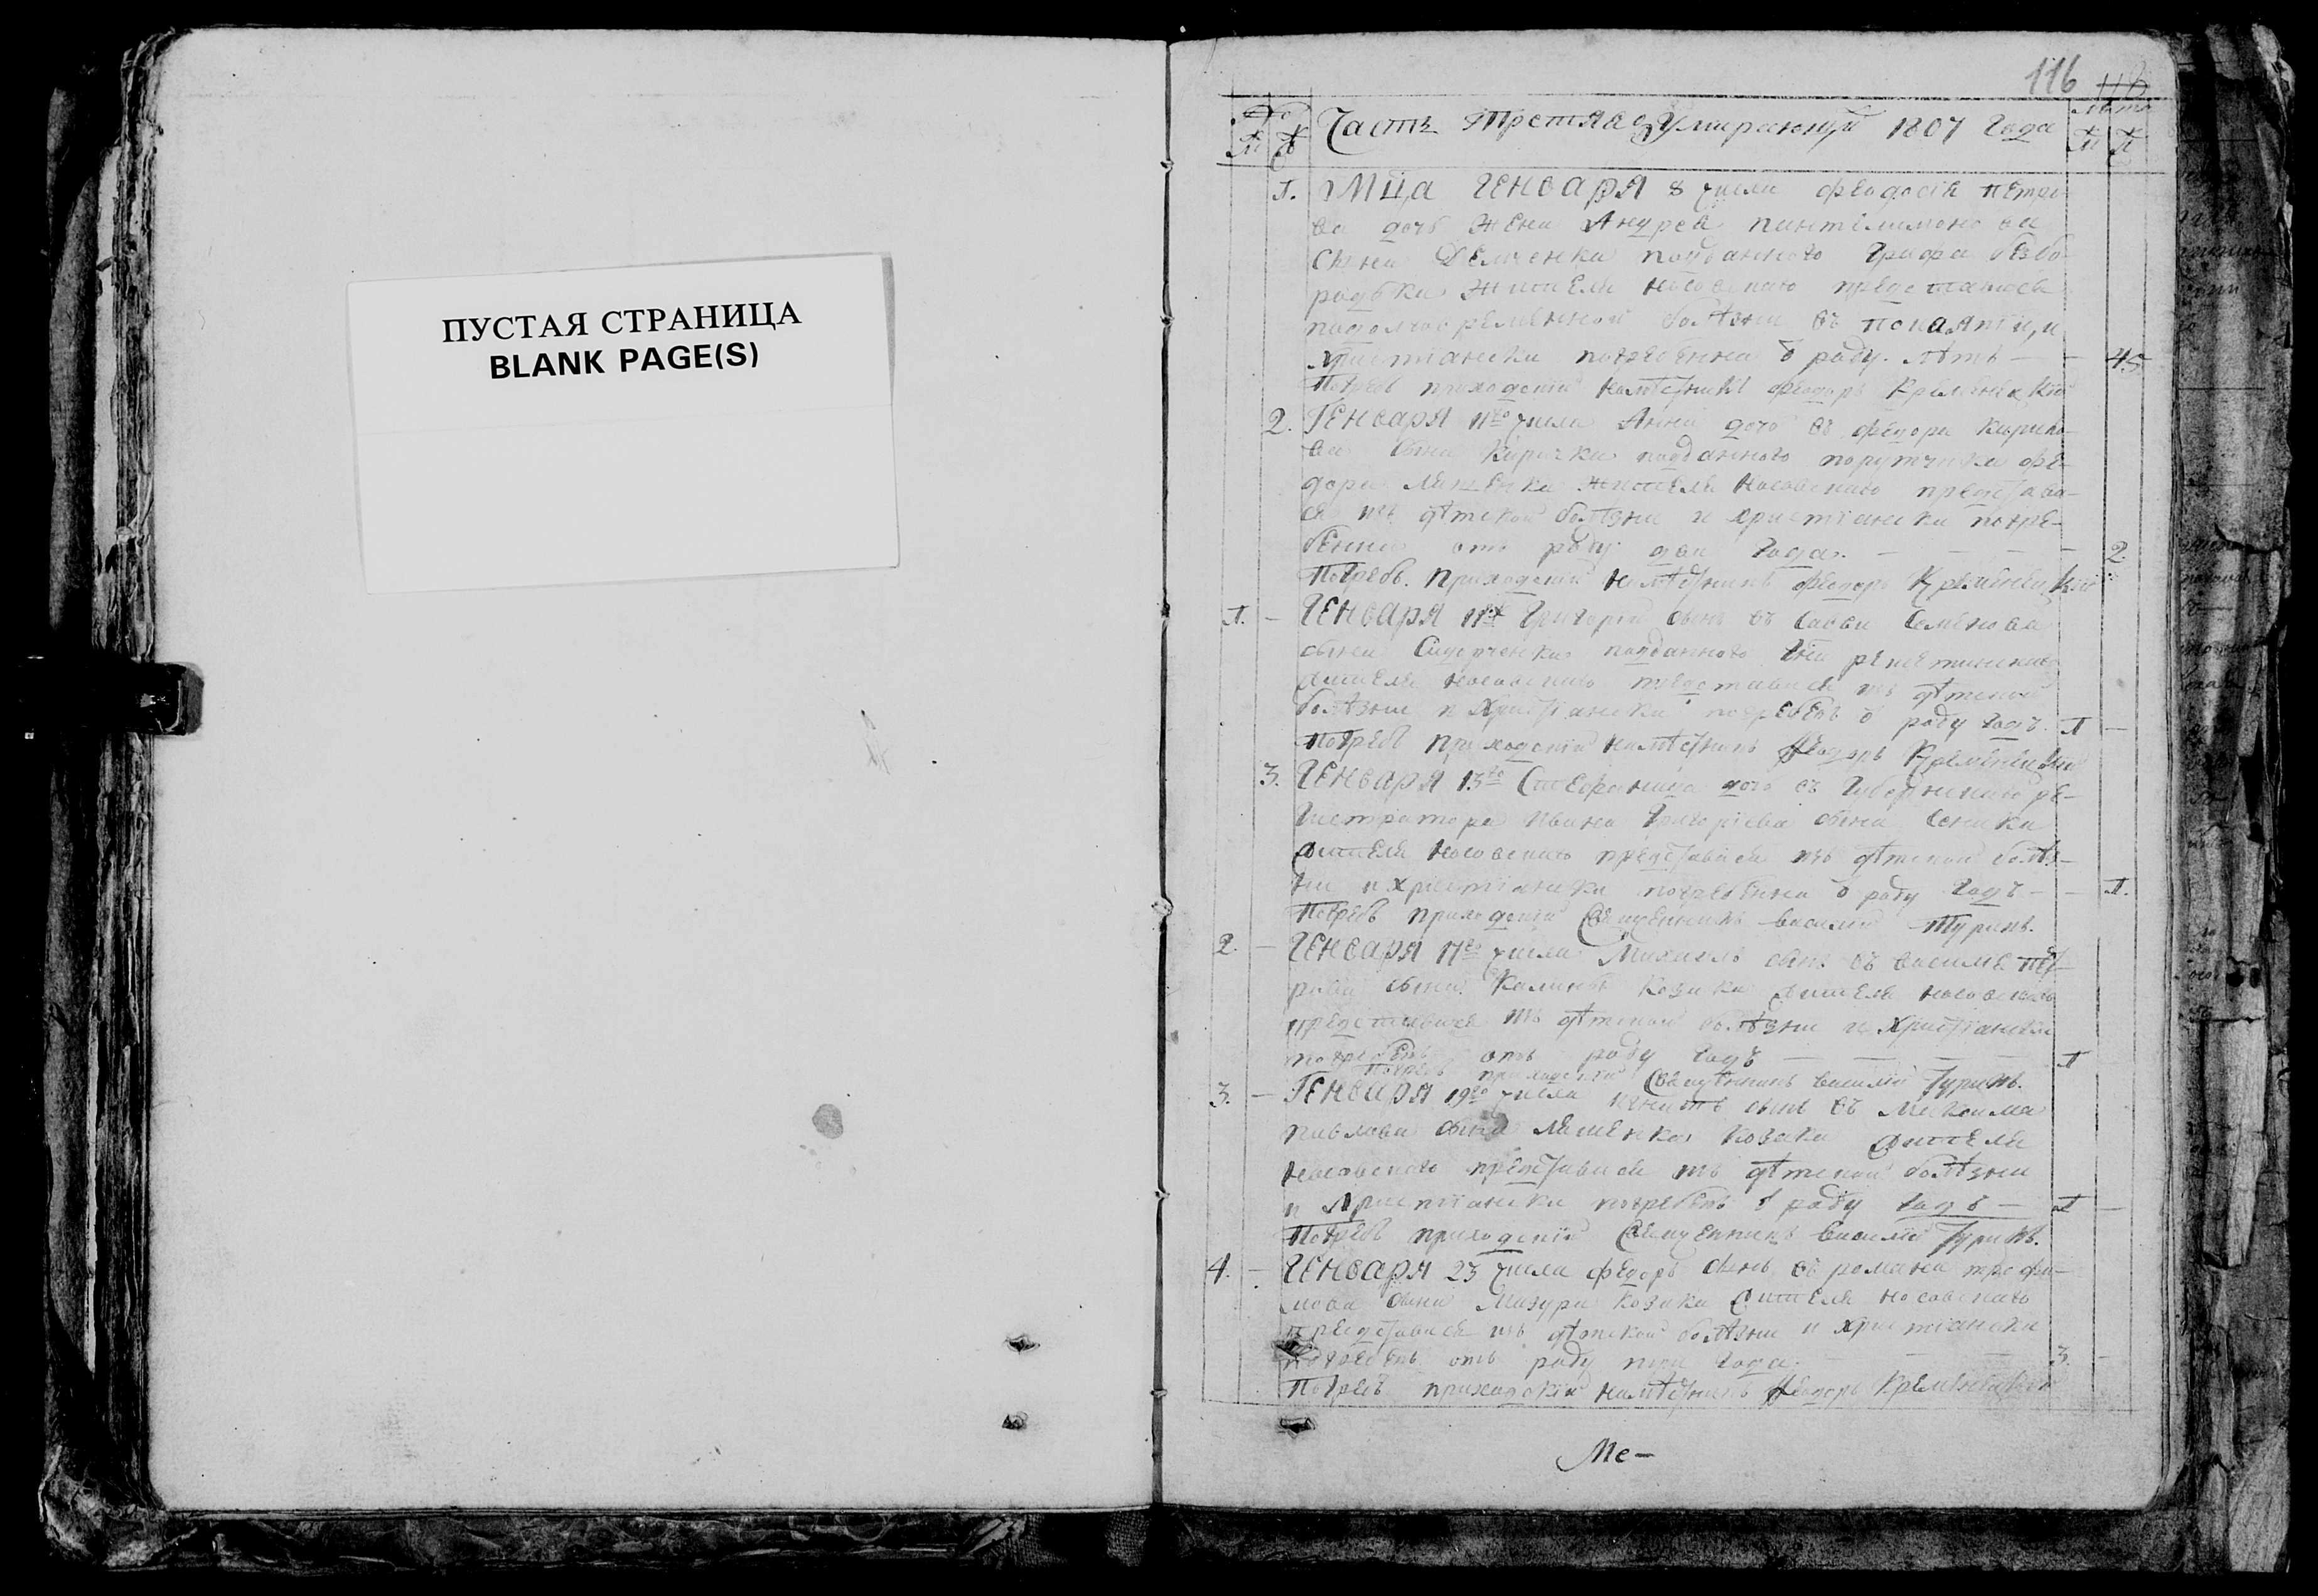 ПУСТАЯ СТРАНИЦА
BLANK PAGE(S)
116
Лѣта
М Ж Часть Третяя о Умирающихъ 1807 Года М Ж
1. Мца Генваря 8 числа Феодосія Петро
ва дочь жена Андрея Пантелимонова
сына Демченка подданного Графа Безбо
родька жителя носовскаго представися
болѣзни въ покаяніи, и
христиански погребенна ѿ роду лѣтъ — — 45
Погребъ приходскій намѣстникъ Феодоръ Кременецкій
2. Генваря 11го числа Анна дочь въ Федора Кирило-
ва сына Киричка подданного порутчика Фе-
дора Ляшенка жителя Носовского представи-
ся изъ дѣтской болѣзни и христиански погре-
бенна отъ роду два года. — — — — 2
Погребъ приходскій намѣстникъ Феодоръ Кременецкій
1. — Генваря 11го Григорій сынъ въ Саввы Семенова
сына Сидорченка подданного
жителя носовскаго представися изъ дѣтской
болѣзни и христиански погребенъ ѿ роду годъ. 1 —
Погребъ приходскій намѣстникъ Феодоръ Кременецкій
3. Генваря 13го Стефанида дочь въ Губернскаго ре-
гистратора Ивана Григоріева сына
жителя Носовского представися изъ дѣтской болѣз-
ни и христиански погребенна ѿ роду годъ — — 1.
Погребъ приходскій Священникъ Василій Туринъ.
2. — Генваря 17го числа Михаилъ сынъ въ Василія Пет-
рова сына козака жителя носовского
представися изъ дѣтской болѣзни и христиански
погребенъ отъ роду годъ — — — — 1
Погребъ приходскій Священникъ Василій Туринъ.
3. — Генваря 19го числа Игнатъ сынъ въ Максима
Павлова сына Ляшенка козака жителя
носовского представися изъ дѣтской болѣзни
и христиански погребенъ ѿ роду годъ — 1 —
Погребъ приходскій Священникъ Василій Туринъ.
4. — Генваря 23 числа Федоръ сынъ въ Романа Трофи-
мова сына Мазури козака жителя носовского
представися изъ дѣтской болѣзни и христиански
погребенъ отъ роду три года. — — 3. —
Погребъ приходскій намѣстникъ Феодоръ Кременецкій
Ме-